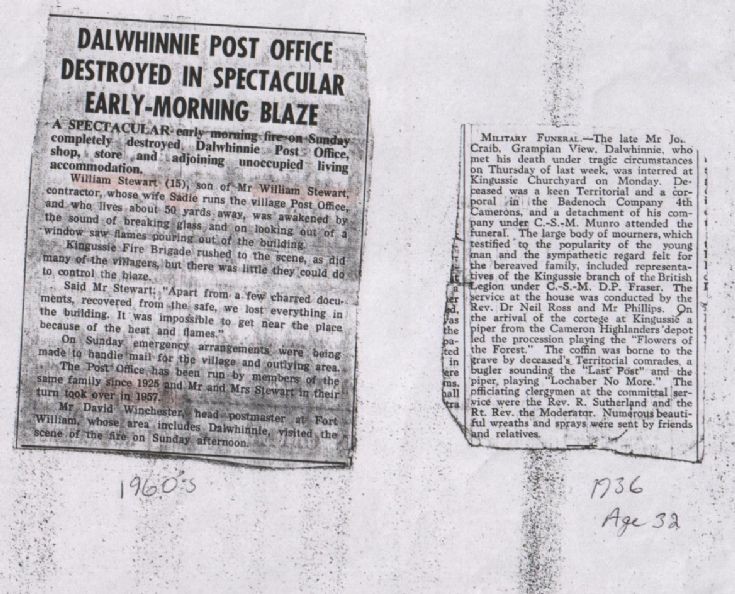 DALWHINNIE POST OFFICE
DESTROYED IN SPECTACULAR
EARLY-MORNING BLAZE
A SPECTACULAR early morning fire on Sunday
completely destroyed Dalwhinnie Post Office,
shop, store and adjoining unoccupied living
accommodation.
William Stewart (15), son of Mr William Stewart,
contractor, whose wife Sadie runs the village Post Office,
and who lives about 50 yards away, was awakened by
the sound of breaking glass and on looking out of a
window saw flames pouring out of the building.
Kingussie Fire Brigade rushed to the scene, as did
many of the villagers, but there was little they could do
to control the blaze.
Said Mr Stewart: "Apart from a few charged docu-
ments, recovered from the safe, we lost everything in
the building. It was impossible to get near the place
because of the heat and flames."
On Sunday emergency arrangements were being
made to handle mail for the village and outlying area.
The Post Office has been run by members of the
same family since 1925 and Mr and Mrs Stewart in their
turn took over in 1957.
Mr David Winchester, head postmaster at Fort
William, whose area includes Dalwhinnie, visited the
scene of the fire on Sunday afternoon.
1960's
MILITARY FUNERAL.—The late Mr
Craib, Grampian View, Dalwhinnie, who
met his death under tragic circumstances
on Thursday of last week, was interred at
Kingussie Churchyard on Monday. De-
ceased was a keen Territorial and a cor-
poral in the Badenoch Company 4th
Camerons, and a detachment of his com-
pany under C.-S.-M. Munro attended the
funeral. The large body of mourners, which
testified to the popularity of the young
man and the sympathetic regard felt for
the bereaved family, included representa-
tives of the Kingussie branch of the British
Legion under C.-S.-M. D.P. Fraser. The
service at the house was conducted by the
Rev. Dr Neil Ross and Mr Phillips. On
the arrival of the cortege at Kingussie a
piper from the Cameron Highlanders' depot
led the procession playing the "Flowers of
the Forest." The coffin was borne to the
grave by deceased's Territorial comrades, a
bugler sounding the "Last Post" and the
piper, playing "Lochaber No More." The
officiating clergymen at the committal ser-
vice were the Rev. R. Sutherland and the
Rt. Rev. the Moderator. Numerous beauti-
ful wreaths and sprays were sent by friends
and relatives.
1936
Age 32